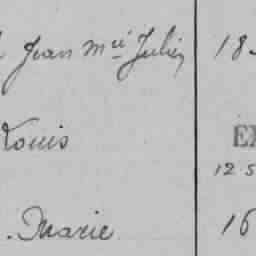 Jean Mie Julien 18
Louis EX
12 5
. Marie 16